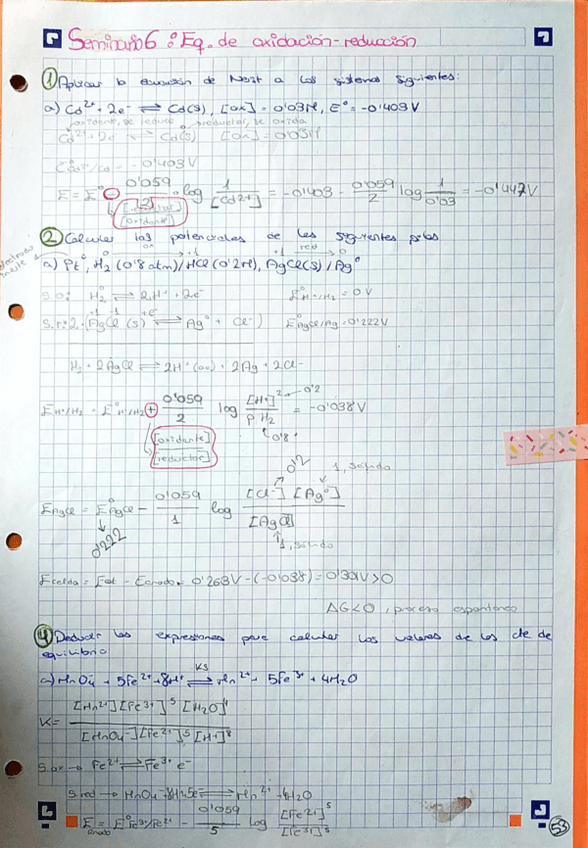 Seminario 6: Eq. de oxidación-reducción
① Aplicar la ecuación de Nerst a los sistemas siguientes:
a) Cd²⁺ + 2e⁻ ⇌ Cd(s), [ox] = 0'03M, E° = -0'403V
oxidante, se reduce reductor, se oxida
Cd²⁺ + 2e⁻ ⇌ Cd(s) [ox] = 0'03M
E°Cd²⁺/Cd = -0'403V
E = E° - 0'059/2 · log 1/[Cd²⁺] = -0'403 - 0'059/2 log 1/0'03 = -0'447V
[reductor]/[oxidante]
② Calcular los potenciales de las siguientes pilas
electrodo inerte
ox +1 +1 red 0
a) Pt, H₂ (0'8 atm)/HCl (0'2M), AgCl(s)/Ag°
s.o: H₂ ⇌ 2H⁺ + 2e⁻ E°H⁺/H₂ = 0V
s.r: 2·(AgCl (s) +e⁻ ⇌ Ag° + Cl⁻) E°AgCl/Ag = 0'222V
H₂ + 2AgCl ⇌ 2H⁺(ac) + 2Ag + 2Cl⁻
EH⁺/H₂ = E°H⁺/H₂ + 0'059/2 log [H⁺]²/pH₂ = -0'038V
0'2
0'8
[oxidante]/[reductor]
0'2 1, sólido
EAgCl = E°AgCl - 0'059/1 log [Cl⁻][Ag°]/[AgCl]
0'222
1, sólido
Ecelda = Ecat - Eánodo = 0'263V - (-0'038) = 0'301V > 0
ΔG<0, proceso espontáneo
④ Deducir las expresiones para calcular los valores de las cte de
equilibrio
a) MnO₄⁻ + 5Fe²⁺ + 8H⁺ ⇌ Mn²⁺ + 5Fe³⁺ + 4H₂O
K = [Mn²⁺][Fe³⁺]⁵[H₂O]⁴/[MnO₄⁻][Fe²⁺]⁵[H⁺]⁸
s.ox → Fe²⁺ ⇌ Fe³⁺ e⁻
s.red → MnO₄⁻ + 8H⁺ + 5e⁻ ⇌ Mn²⁺ + 4H₂O
E ánodo = E°Fe³⁺/Fe²⁺ - 0'059/5 log [Fe²⁺]⁵/[Fe³⁺]⁵
53